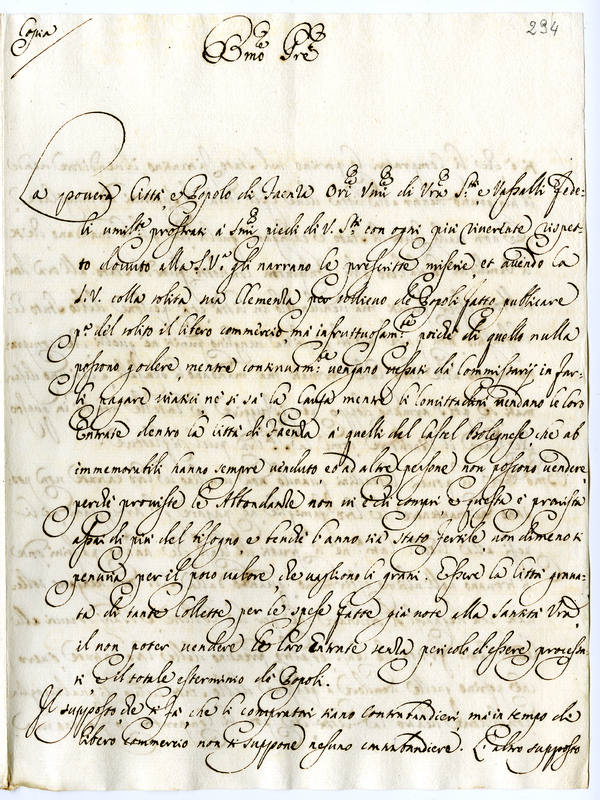 Copia
294
Bmo Pre
La povera Città, e Popolo di Faenza Ori Umi di Vra Sta, e Vassalli Fede-
li umilte prostrati à Smi piedi di V. Sta con ogni più riverente rispet-
to dovuto alla S.V. gli narrano le miserie, et avendo la
S.V. colla solita sua Clemenza per sollievo de Popoli fatto publicare
pa del solito il libero commercio, ma infruttuosamte, poiche di quello nulla
possono godere, mentre continuamte vengano vessati da Commissarij in far-
li pagare viatici ne si sà la Causa mentre li Concittadini vendano le loro
Entrate dentro la Città di Faenza à quelli del Castel Bolognese, che ab
immemorabili hanno sempre venduto, ed ad altre persone non possono vendere,
perche proviste le Abbondanze non vi è chi compri, e questa è provista
assai di più del bisogno, e benche l'anno sia stato fertile, non dimeno si
penuria per il poco valore, che vagliono li grani. Essere la Città grava-
ta di tante Collette, per le spese fatte già note alla Santità Vra,
il non poter vendere le loro Entrate senza pericolo d'essere processa-
ti è il totale esterminio de Popoli.
Il supposto, che si fà, che li compratori siano Contrabandieri, mà in tempo di
libero commercio non si suppone nesuno contrabandiere. L'altro supposto